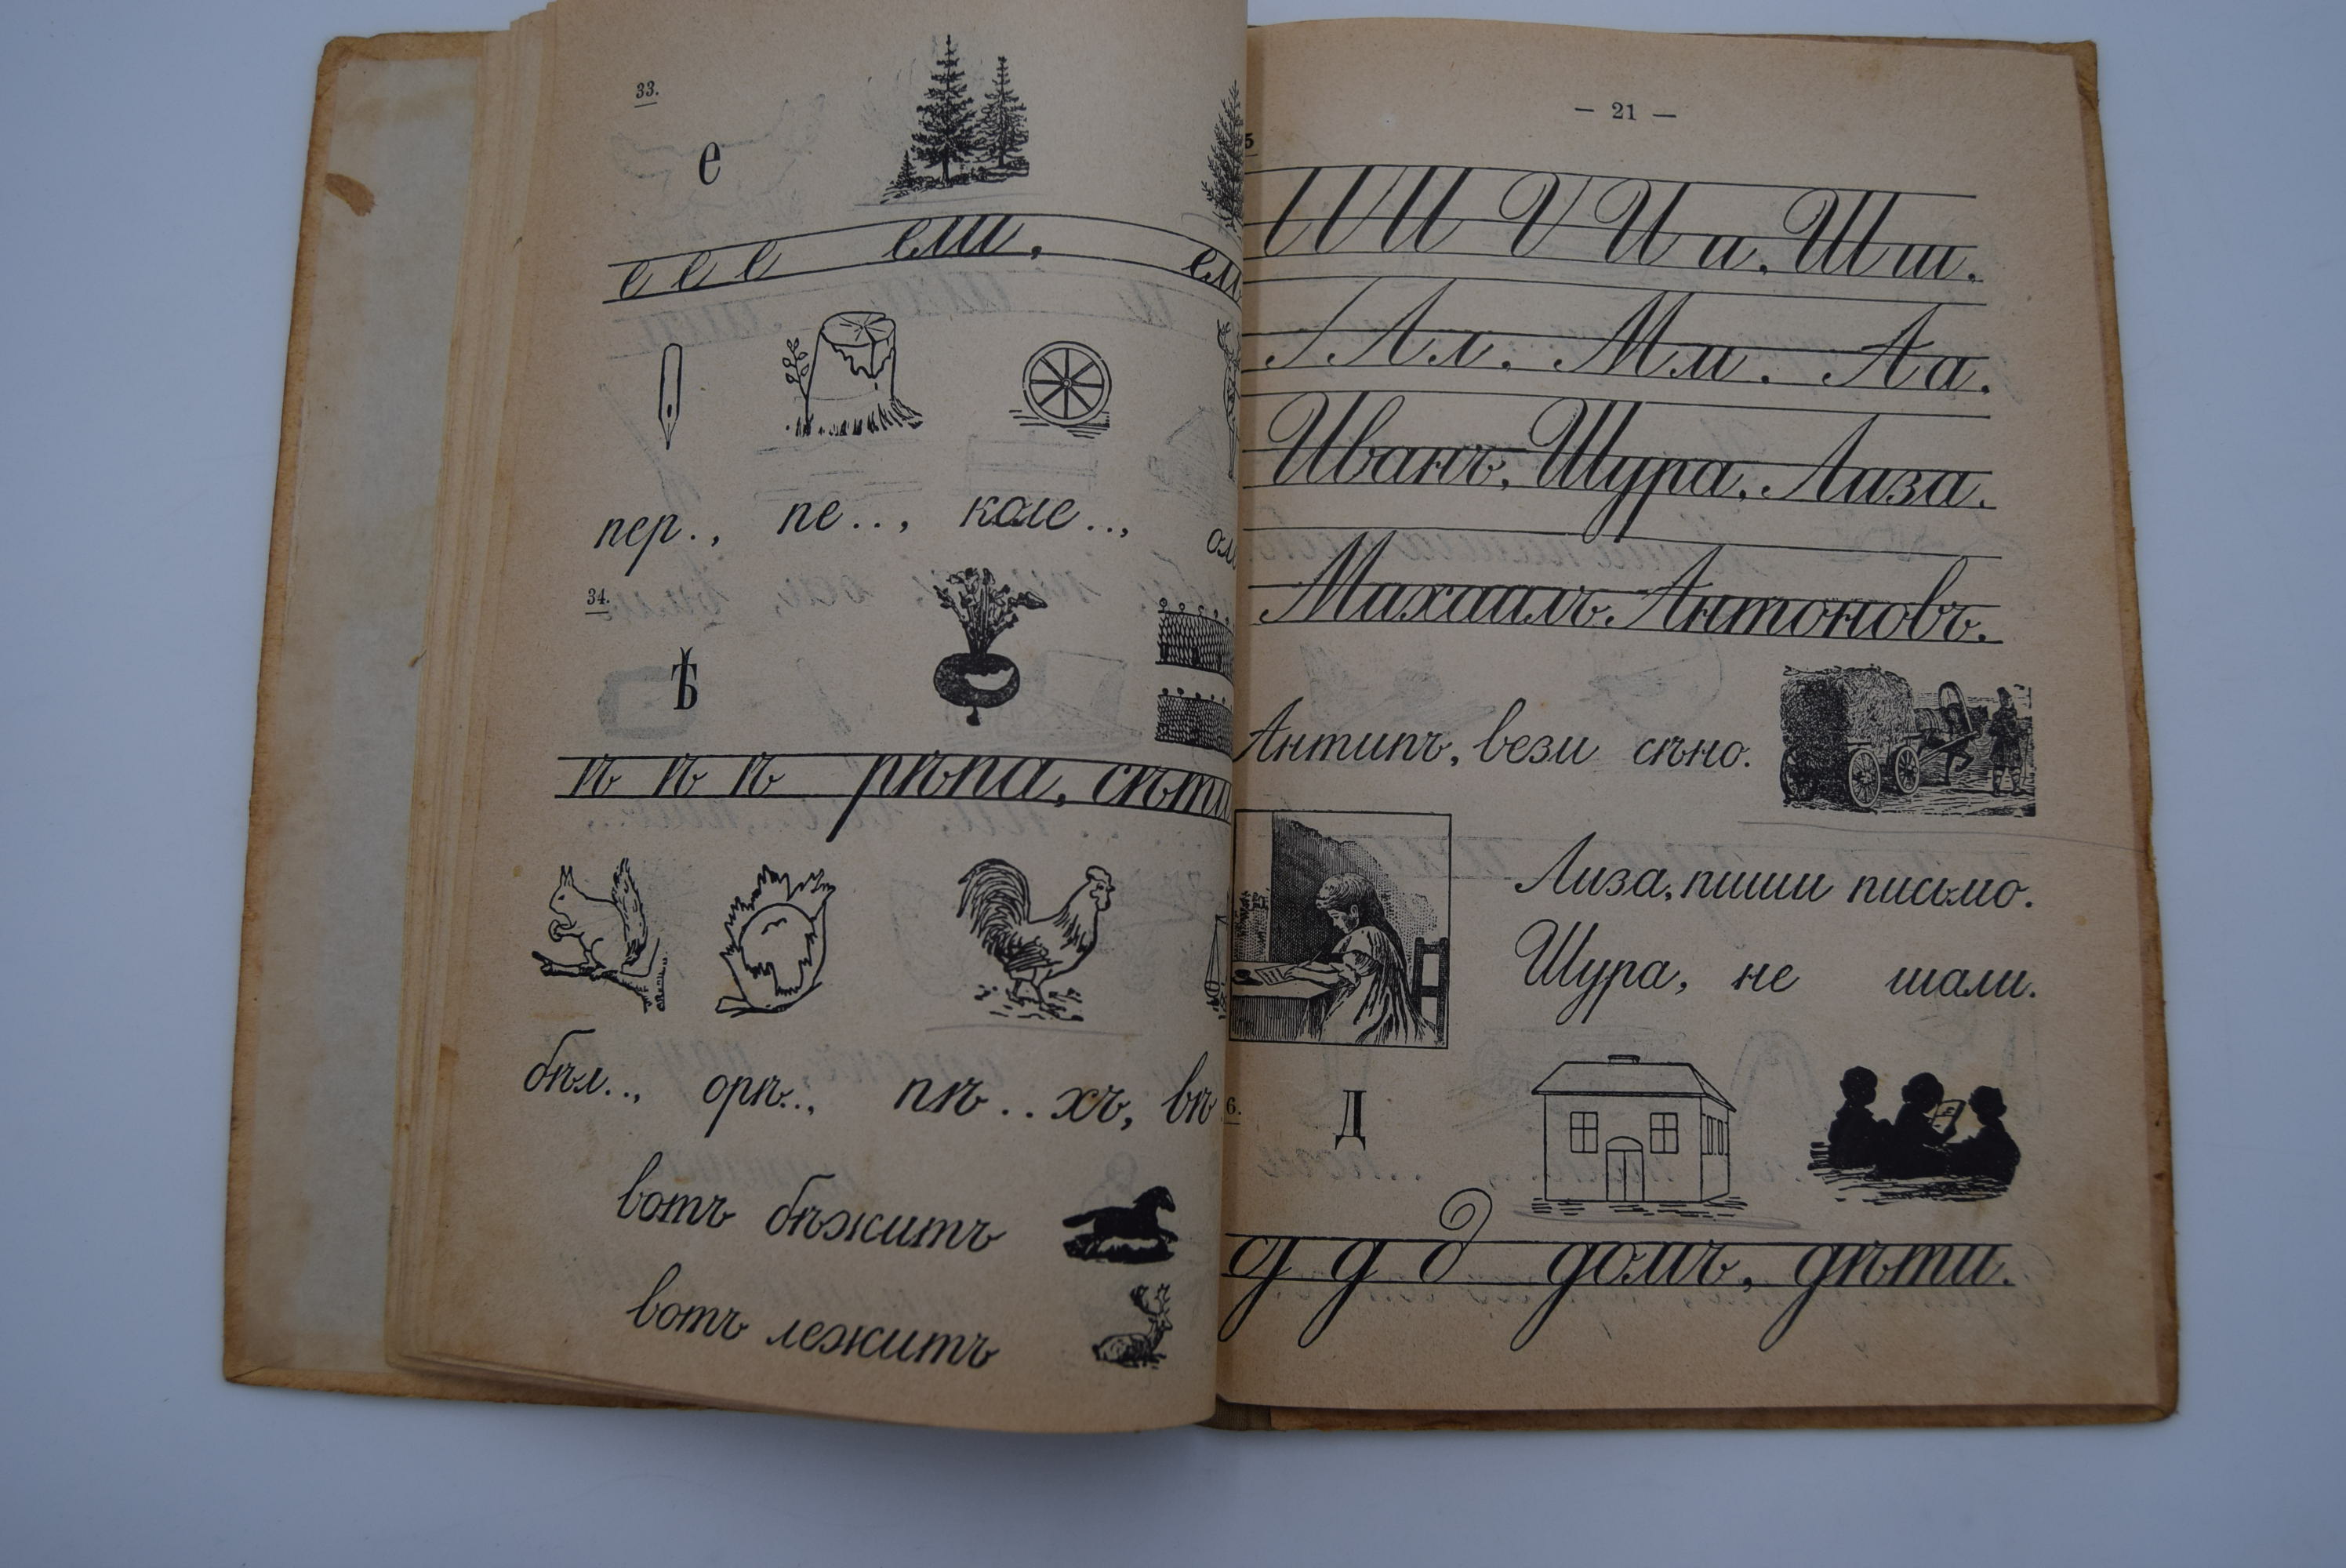 33.
е
е е е ели,
пер., пе.., коле..,
34.
ѣ
ѣ ѣ ѣ рѣпа, сѣти
бѣл.., орѣ.., пѣ..хъ, вѣ
вотъ бѣжитъ
вотъ лежитъ
— 21 —
5
И И и. Ш ш.
Л л. М м. А а.
Иванъ, Шура, Лиза.
Михаилъ Антоновъ.
Антипъ, вези сѣно.
Лиза, пиши письмо.
Шура, не шали.
6.
Д
д д д домъ, дѣти.